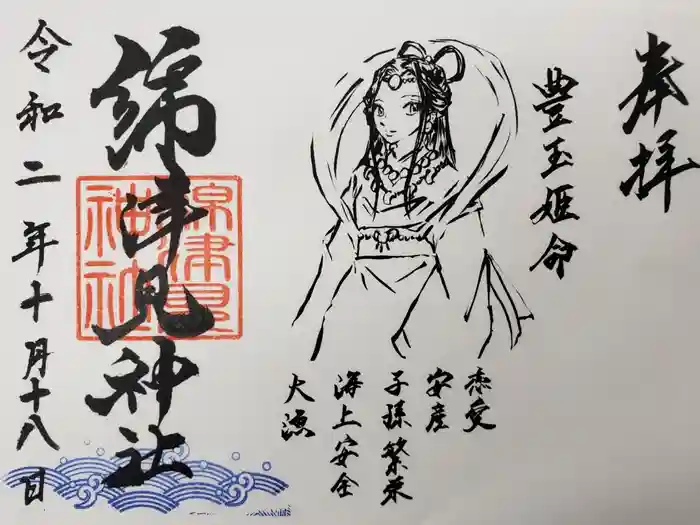 奉拝
豊玉姫命
恋愛
安産
子孫繁栄
海上安全
大漁
綿津見神社
綿津見神社
令和二年十月十八日